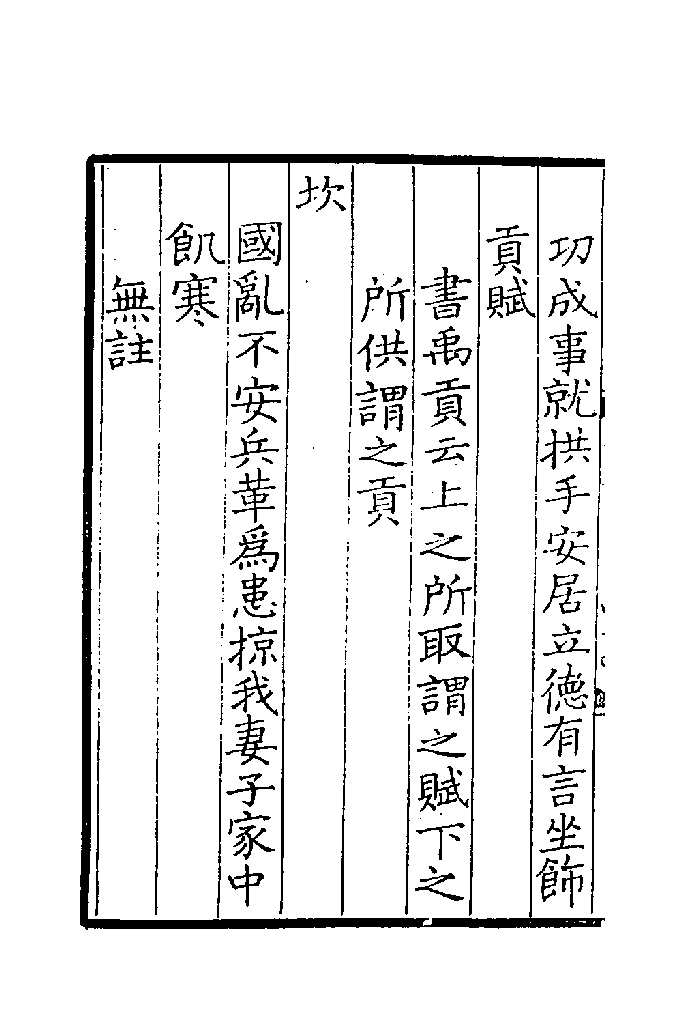 功成事就拱手安居立德有言坐飾
貢賦
書禹貢云上之所取謂之賦下之
所供謂之貢
坎
國亂不安兵革爲患掠我妻子家中
飢寒
無註